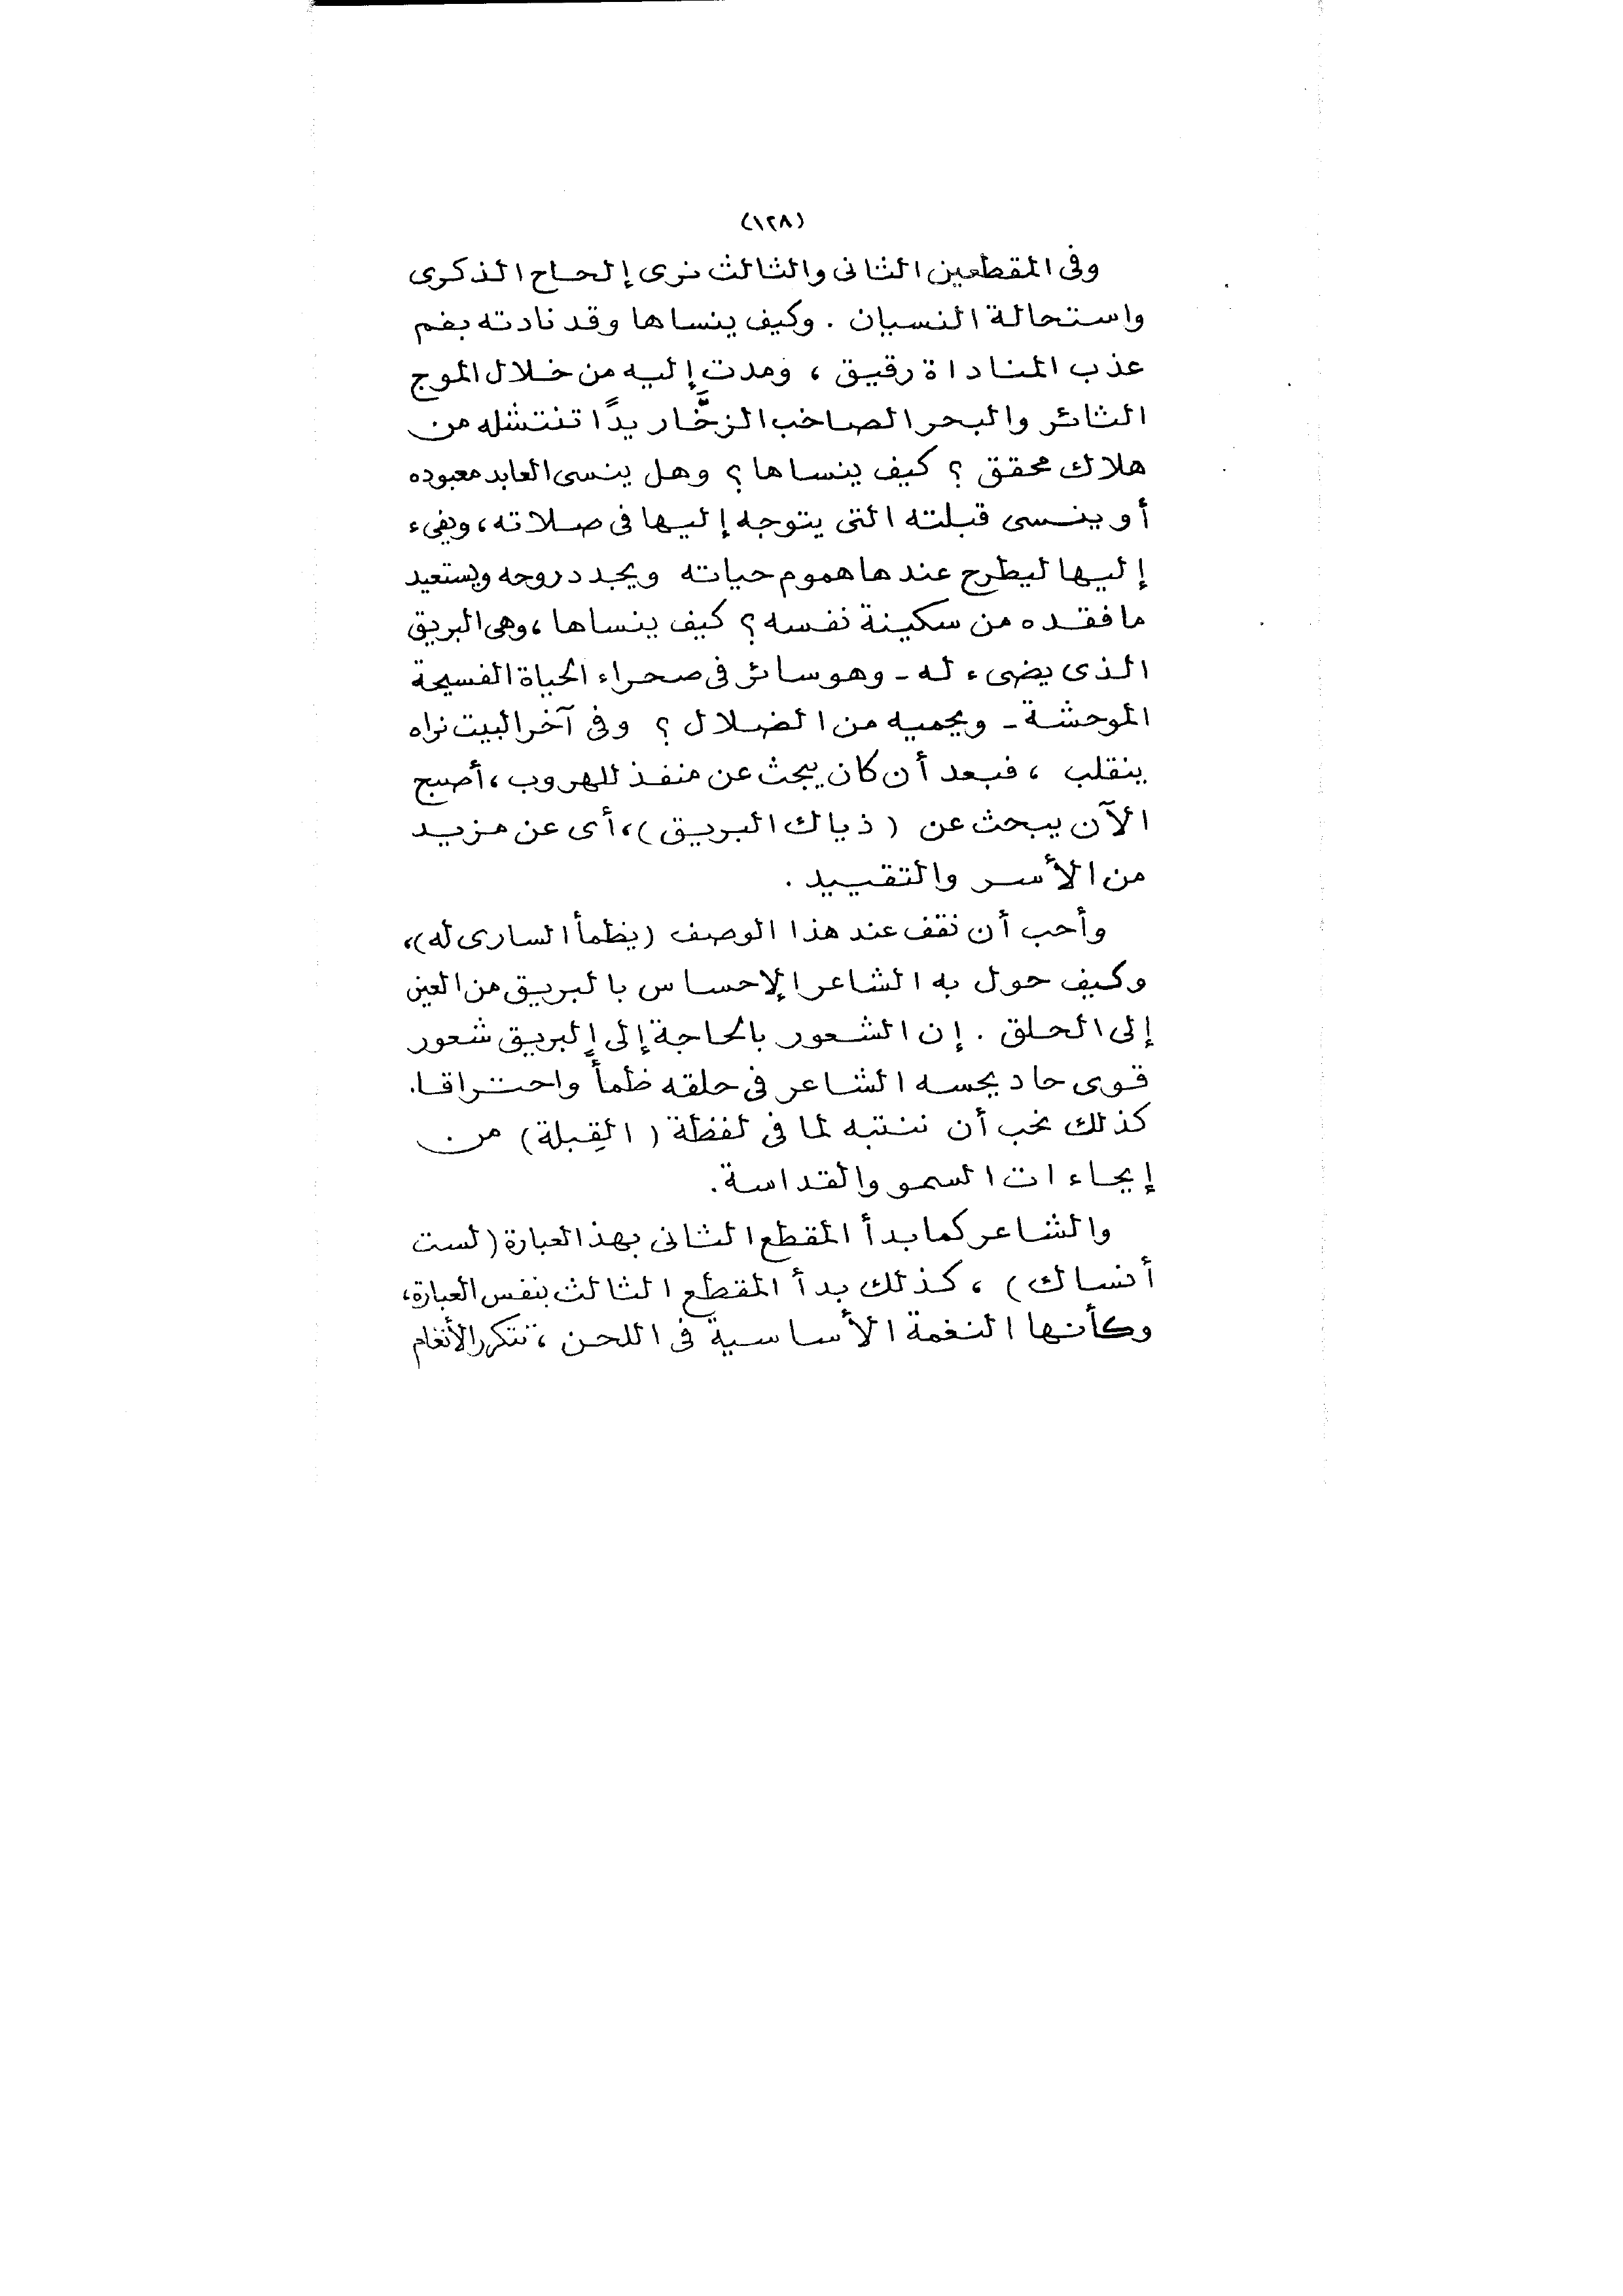 (١٢٨)
وفى المقطعين الثانى والثالث نرى إلحاح الذكرى
واستحالة النسيان . وكيف ينساها وقد نادته بفم
عذب المناداة رقيق ، ومدت إليه من خلال الموج
الثائر والبحر الصاخب الزخَّار يدًا تنتشله من
هلاك محقق ؟ كيف ينساها ؟ وهل ينسى العابد معبوده
أو ينسى قبلته التى يتوجه إليها فى صلاته ، ويفىء
إليها ليطرح عندها هموم حياته ويجدد روحه ويستعيد
ما فقده من سكينة نفسه ؟ كيف ينساها ، وهى البريق
الذى يضىء له - وهو سائر فى صحراء الحياة الفسيحة
الموحشة - ويحميه من الضلال ؟ وفى آخر البيت نراه
ينقلب ، فبعد أن كان يبحث عن منفذ للهروب ، أصبح
الآن يبحث عن ( ذياك البريق ) ، أى عن مزيد
من الأسر والتقييد .
وأحب أن نقف عند هذا الوصف (يظمأ السارى له) ،
وكيف حول به الشاعر الإحساس بالبريق من العين
إلى الحلق . إن الشعور بالحاجة إلى البريق شعور
قوى حاد يحسه الشاعر فى حلقه ظمأً واحتراقا .
كذلك نحب أن ننتبه لما فى لفظة ( القِبلة ) من
إيحاءات السمو والقداسة .
والشاعر كما بدأ المقطع الثانى بهذ العبارة ( لست
أنساك ) ، كذلك بدأ المقطع الثالث بنفس العبارة ،
وكأنها النغمة الأساسية فى اللحن ، تتكرر الأنغام